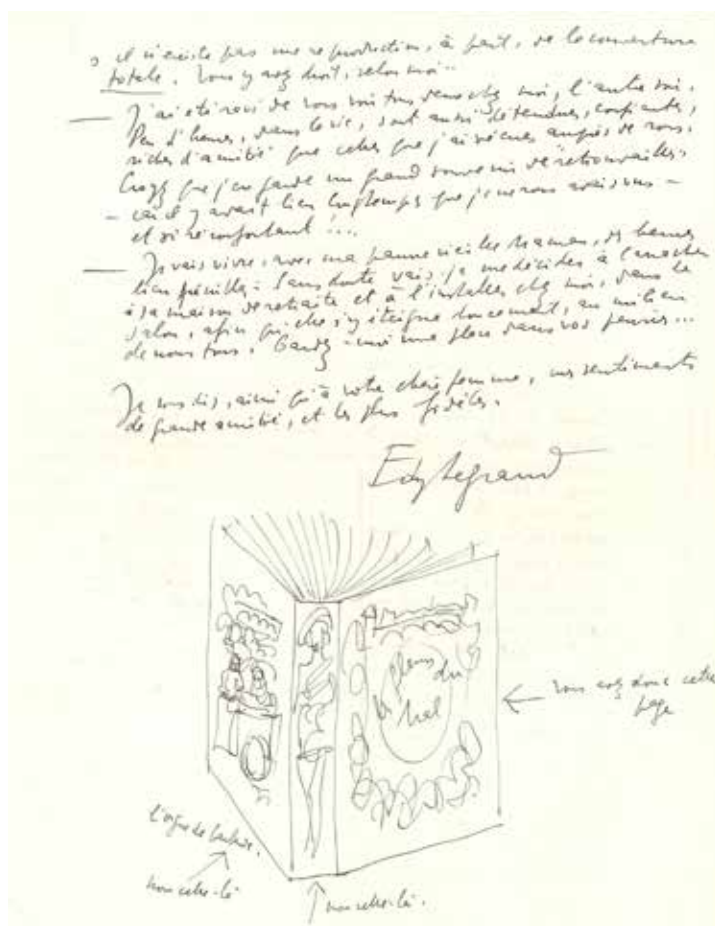 il n'existe pas une reproduction, à part, de la couverture
totale. Vous y avez droit, selon moi..
— J'ai été ravi de vous voir tous deux chez moi, l'autre soir.
Peu d'heures, dans la vie, sont aussi détendues, confiantes,
riches d'amitié que celles que j'ai vécues auprès de vous.
Croyez que j'en garde un grand souvenir de retrouvailles
— car il y avait bien longtemps que je ne vous avais vus —
et si réconfortant !...
— Je vais vivre, avec ma pauvre vieille Maman, des heures
bien pénibles. Sans doute vais-je me décider à l'arracher
à sa maison de retraite et à l'installer chez moi, dans le
salon, afin qu'elle s'y éteigne doucement, au milieu
de nous tous. Gardez-moi une place dans vos pensées...
Je vous dis, ainsi qu'à votre chère femme, mes sentiments
de grande amitié, et les plus fidèles.
Edy Legrand
fleurs du
mal
vous avez donc cette
page
L'orgue de
non celle-là
non celle-là.